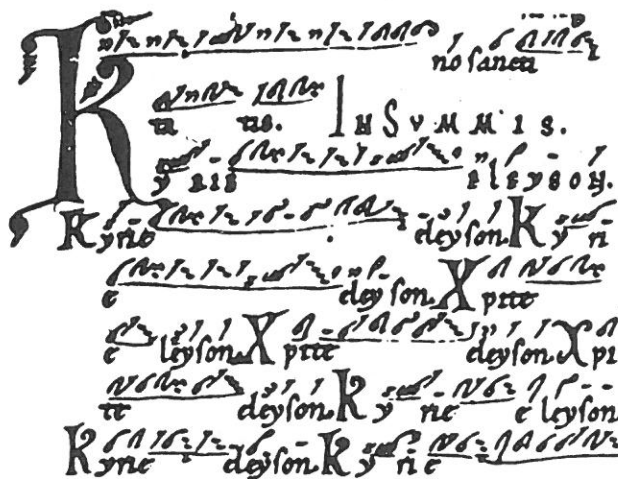 no sancti
ta tis. IN SVMMIS.
Ky RIE ELEYSON.
Kyrie eleyson. Ky ri
e eleyson. Xpiste
e leyson. Xpiste eleyson. Xpi
te eleyson. Ky rie e leyson
Kyrie eleyson. Ky ri e